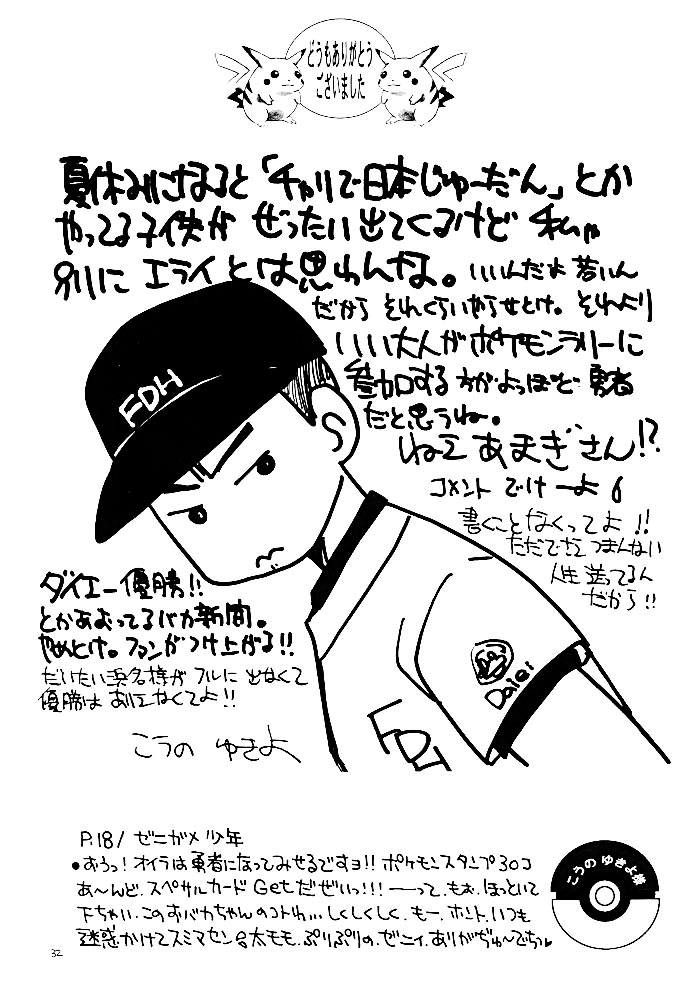 どうもありがとう
ございました
夏休みになると「チャリで日本じゅーだん」とか
やってる子供が ぜったい出てくるけど 私ゃ
別に エライとは思わんな。いいんだよ 若いん
だから それくらいやらせとけ。それより
いい大人がポケモンラリーに
参加する方がよっぽど 勇者
だと思うね。
ねェ あまぎさん!?
コメント でけーよ
書くことなくってよ!!
ただでさェ つまんない
人生 送ってるん
だから!!
FDH
ダイエー優勝!!
とかあおってるバカ新聞。
やめとけ。ファンがつけ上がる!!
だいたい浜名様が フルに 出なくて
優勝は ありェなくてよ!!
Daiei
FDH
こうの ゆきよ
P.18/ ゼニガメ少年
●おうっ!オイラは勇者になってみせるですヨ!! ポケモンスタンプ30コ
あ〜んど、スペサルカード Getだぜいっ!!! ──って、もぉ、ほっといて
下ちゃい、このおバカちゃんのコトわ… しくしくしく、もー、ホント、いつも
迷惑かけてスミマセン 太モモ、ぷりぷりの、ゼニィ、ありがぢゅ〜でちっ♥
こうの ゆきよ様
32